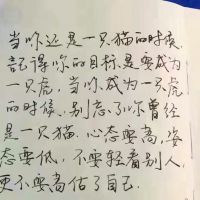 当你还是一只猫的时候，
记得你的目标是要成为
一只虎，当你成为一只虎
的时候，别忘了你曾经
是一只猫。心态要高，姿
态要低，不要轻看别人，
更不要高估了自己.